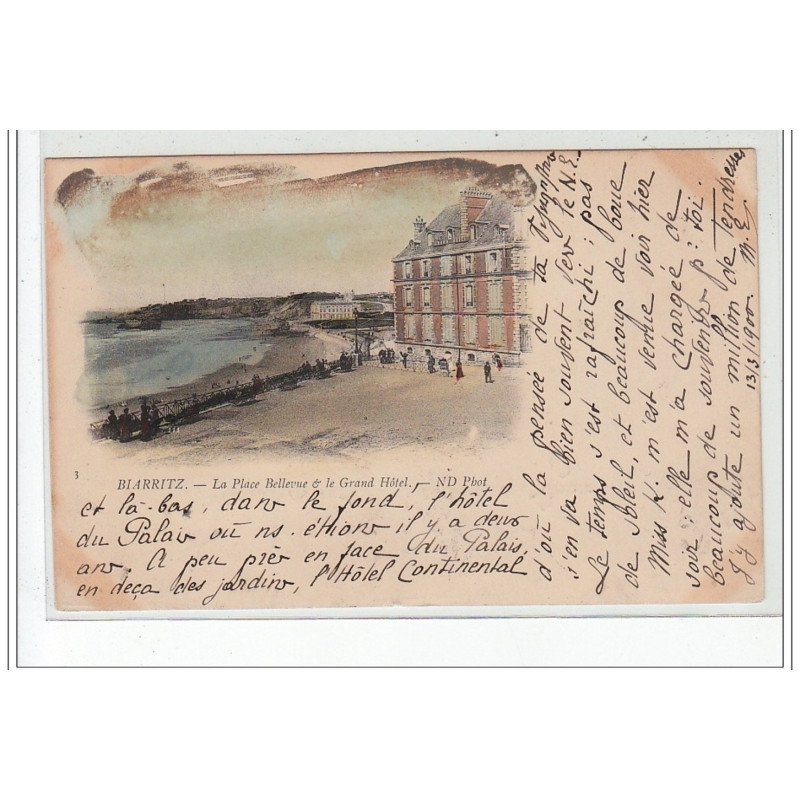 3
BIARRITZ. — La Place Bellevue & le Grand Hôtel. — ND Phot
et là-bas, dans le fond, l'hôtel
du Palais où ns. étions il y a deux
ans. A peu près en face du Palais,
en deça des jardins, l'Hôtel Continental
d'où la pensée de ta
s'en va bien souvent vers le N.E.
Le temps s'est rafraîchi ; pas
de soleil, et beaucoup de boue
Miss K. m'est venue voir hier
soir : elle m'a chargée de
beaucoup de souvenirs pr toi.
J'y ajoute un million de Tendresses
13/3/1900. M.E